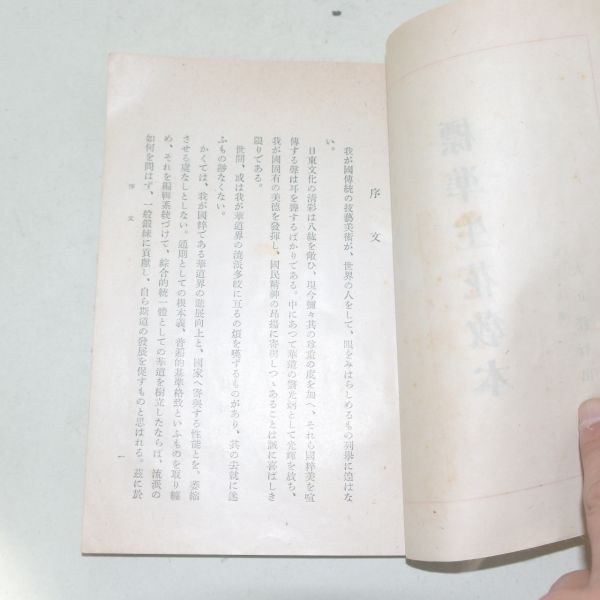 序文
我が國傳統の技藝美術が、世界の人をして、眼をみはらしめるもの列擧に遑はな
い。
日東文化の淸彩は八紘を俶ひ、現今彌々其の珍重の度を加へ、それら國粹美を喧
傳する聲は耳を聾するばかりである。中にあつて華道の聲光炳として光輝を放ち、
我が國固有の美德を發揮し、國民精神の昂揚に寄與しつゝあることは誠に喜ばしき
限りである。
世間、或は我が華道界の流派多岐に亙るの煩を嘆するものがあり、其の去就に迷
ふもの尠なくない。
かくては、我が國粹である華道界の進展向上と、國家へ寄與する性能とを、萎縮
させる虞なしとしない。通則としての根本義、普遍的基準格致といふものを取り纏
め、それを編輯系統づけて、綜合的統一體としての華道を樹立したならば、流派の
如何を問はず、一般鍛鍊に貢獻し、自ら斯道の發展を促すものと思はれる。茲に於
序文
一
標準生花敎本